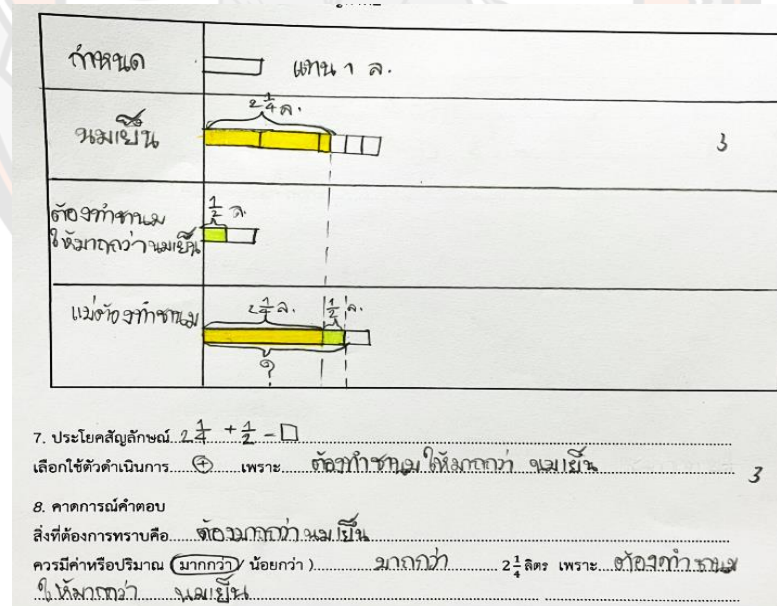 กำหนด แทน 1 ล.
2 1/4 ล.
นมเย็น 3
ต้องทำชานม 1/2 ล.
ให้มากกว่านมเย็น
แม่ต้องทำชานม 2 1/4 ล. 1/2 ล.
?
7. ประโยคสัญลักษณ์ 2 1/4 + 1/2 = □
เลือกใช้ตัวดำเนินการ + เพราะ ต้องทำชานมให้มากกว่า นมเย็น 3
8. คาดการณ์คำตอบ
สิ่งที่ต้องการทราบคือ ต้องมากกว่านมเย็น
ควรมีค่าหรือปริมาณ (มากกว่า/ น้อยกว่า ) มากกว่า 2 1/4 ลิตร เพราะ ต้องทำชานม
ให้มากกว่า นมเย็น